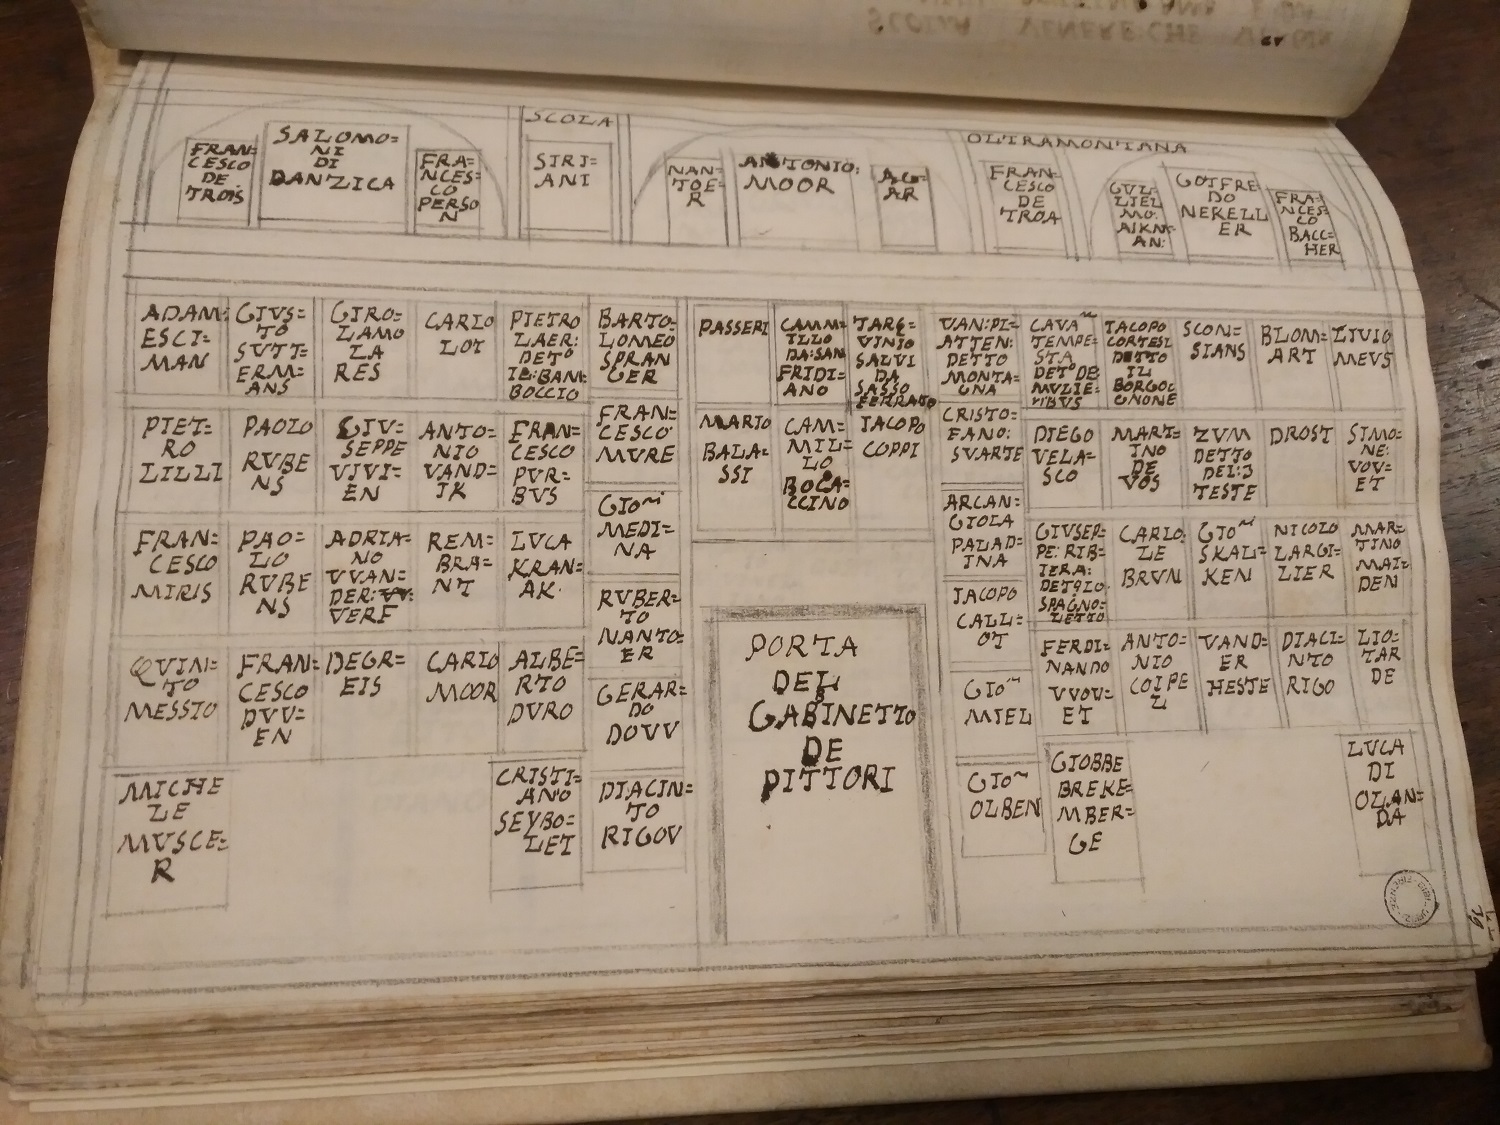 SCOLA
OLTRAMONTANA
FRAN=
CESCO
DE
TROIS
SALOMO=
NI
DI
DANZICA
FRA=
NCES=
CO
PERSO
N
SIRI=
ANI
NAN=
TOE=
R
ANTONIO:
MOOR
AG=
AR
FRAN=
CESCO
DE
TROA
GVL=
LIEL
MO:
AIKM=
AN:
GOIFRE
DO
NERELL
ER
FRA=
NCES=
CO
BACC=
HER
ADAM:
ESCI=
MAN
GIVS=
TO
SVTT=
ERM=
ANS
GIRO=
LAMO
LA
RES
CARLO
LOT
PIETRO
LAER:
DETO
IL:BAM:
BOCCIO
BARTO=
LOMEO
SPRAN
GER
PASSERI
CAMM=
ILLO
DA:SAN
FRIDI=
ANO
TARQ=
VINIO
SALVI
DA
SASSO
FERRATO
VAN:PL=
ATTEN:
DETTO
MONTA=
GNA
CAVA~
TEMPE=
STA
DETO DE
MVLIE=
RIBVS
IACOPO
CORTESI
DETTO
IL
BORGOG
GNONE
SCON=
SIANS
BLOM=
ART
LIVIO
MEVS
PIET=
RO
LILLI
PAOLO
RVBE
NS
GIV=
SEPPE
VIVI=
EN
ANTO=
NIO
VAND=
IK
FRAN=
CESCO
PVR=
BVS
FRAN=
CESCO
MVRE
MARIO
BALA=
SSI
CAM=
MIL=
LO
BOCA=
CCINO
IACOPO
COPPI
CRISTO=
FANO:
SVARTE
DIEGO
VELA=
SCO
MART=
INO
DE
VOS
ZVM
DETTO
DEL:3
TESTE
DROST
SIMO=
NE:
VOV=
ET
FRAN=
CESCO
MIRIS
PAO=
LO
RVBE
NS
ADRIA=
NO
VVAN=
DER:
VERF
REM=
BRA=
NT
LVCA
KRAN=
AK·
GIO~
MEDI=
NA
ARCAN=
GIOLA
PALAD=
INA
GIVSEP=
PE: RIB=
IERA:
DETOLO
SPAGNO=
LETTO
CARLO:
LE
BRVN
GIO~
SKAL=
KEN
NICOLO
LARGI=
LIER
MAR=
TINO
MAI=
DEN
RVBER=
TO
NANTO=
ER
IACOPO
CALL=
OT
QVIN=
TO
MESSIO
FRAN=
CESCO
DVV=
EN
DEGR=
EIS
CARLO
MOOR
ALBE=
RTO
DVRO
GERAR=
DO
DOVV
PORTA
DEL
GABINETTO
DE
PITTORI
GIO~
MIEL
FERDI=
NANDO
VVOV=
ET
ANTO=
NIO
COIPE
L
VAND=
ER
HESTE
DIACI=
NTO
RIGO
LIO=
TAR
DE
MICHE
LE
MVSCE=
R
CRISTI=
ANO
SEYBO=
LET
DIACIN=
TO
RIGOV
GIO~
OLBEN
GIOBBE
BREKE=
MBER=
GE
LVCA
DI
OLAN=
DA